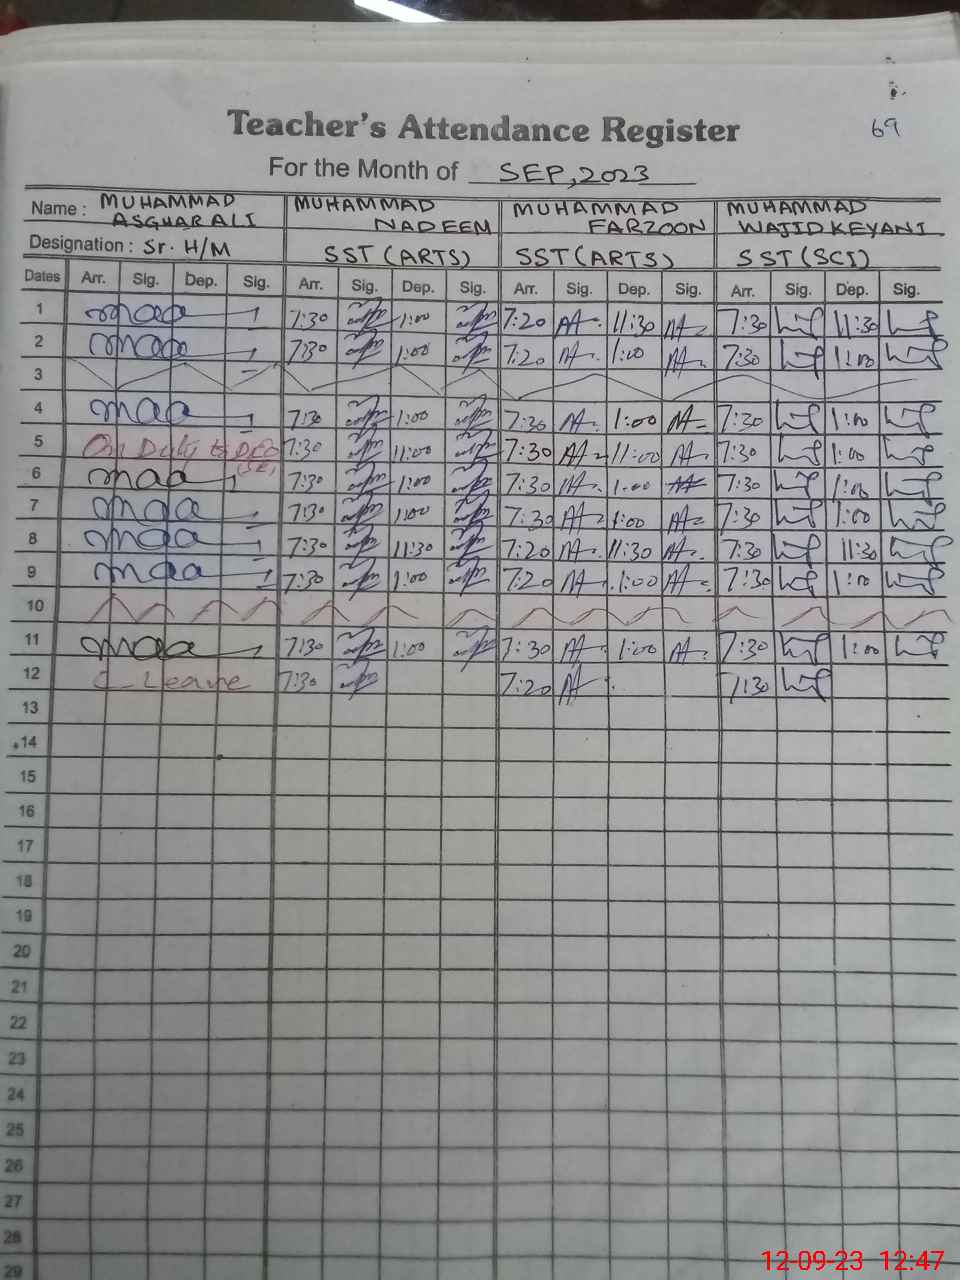 69
Teacher's Attendance Register
For the Month of SEP, 2023
Name : MUHAMMAD ASGHAR ALI MUHAMMAD NADEEM MUHAMMAD FARZOON MUHAMMAD WAJID KEYANI
Designation : Sr. H/M SST (ARTS) SST (ARTS) SST (SCI)
Dates Arr. Sig. Dep. Sig. Arr. Sig. Dep. Sig. Arr. Sig. Dep. Sig. Arr. Sig. Dep. Sig.
1 maa 7:30 1:00 7:20 11:30 7:30 11:30
2 maa 7:30 1:00 7:20 1:00 7:30 1:00
3
4 maa 7:30 1:00 7:30 1:00 7:30 1:00
5 On Duty to DEO (SE) 7:30 11:00 7:30 11:00 7:30 1:00
6 maa 7:30 1:00 7:30 1:00 7:30 1:00
7 maa 7:30 1:00 7:30 1:00 7:30 1:00
8 maa 7:30 11:30 7:20 11:30 7:30 11:30
9 maa 7:30 1:00 7:20 1:00 7:30 1:00
10
11 maa 7:30 1:00 7:30 1:00 7:30 1:00
12 C Leave 7:30 7:20 7:30
13
14
15
16
17
18
19
20
21
22
23
24
25
26
27
28
29
12-09-23 12:47